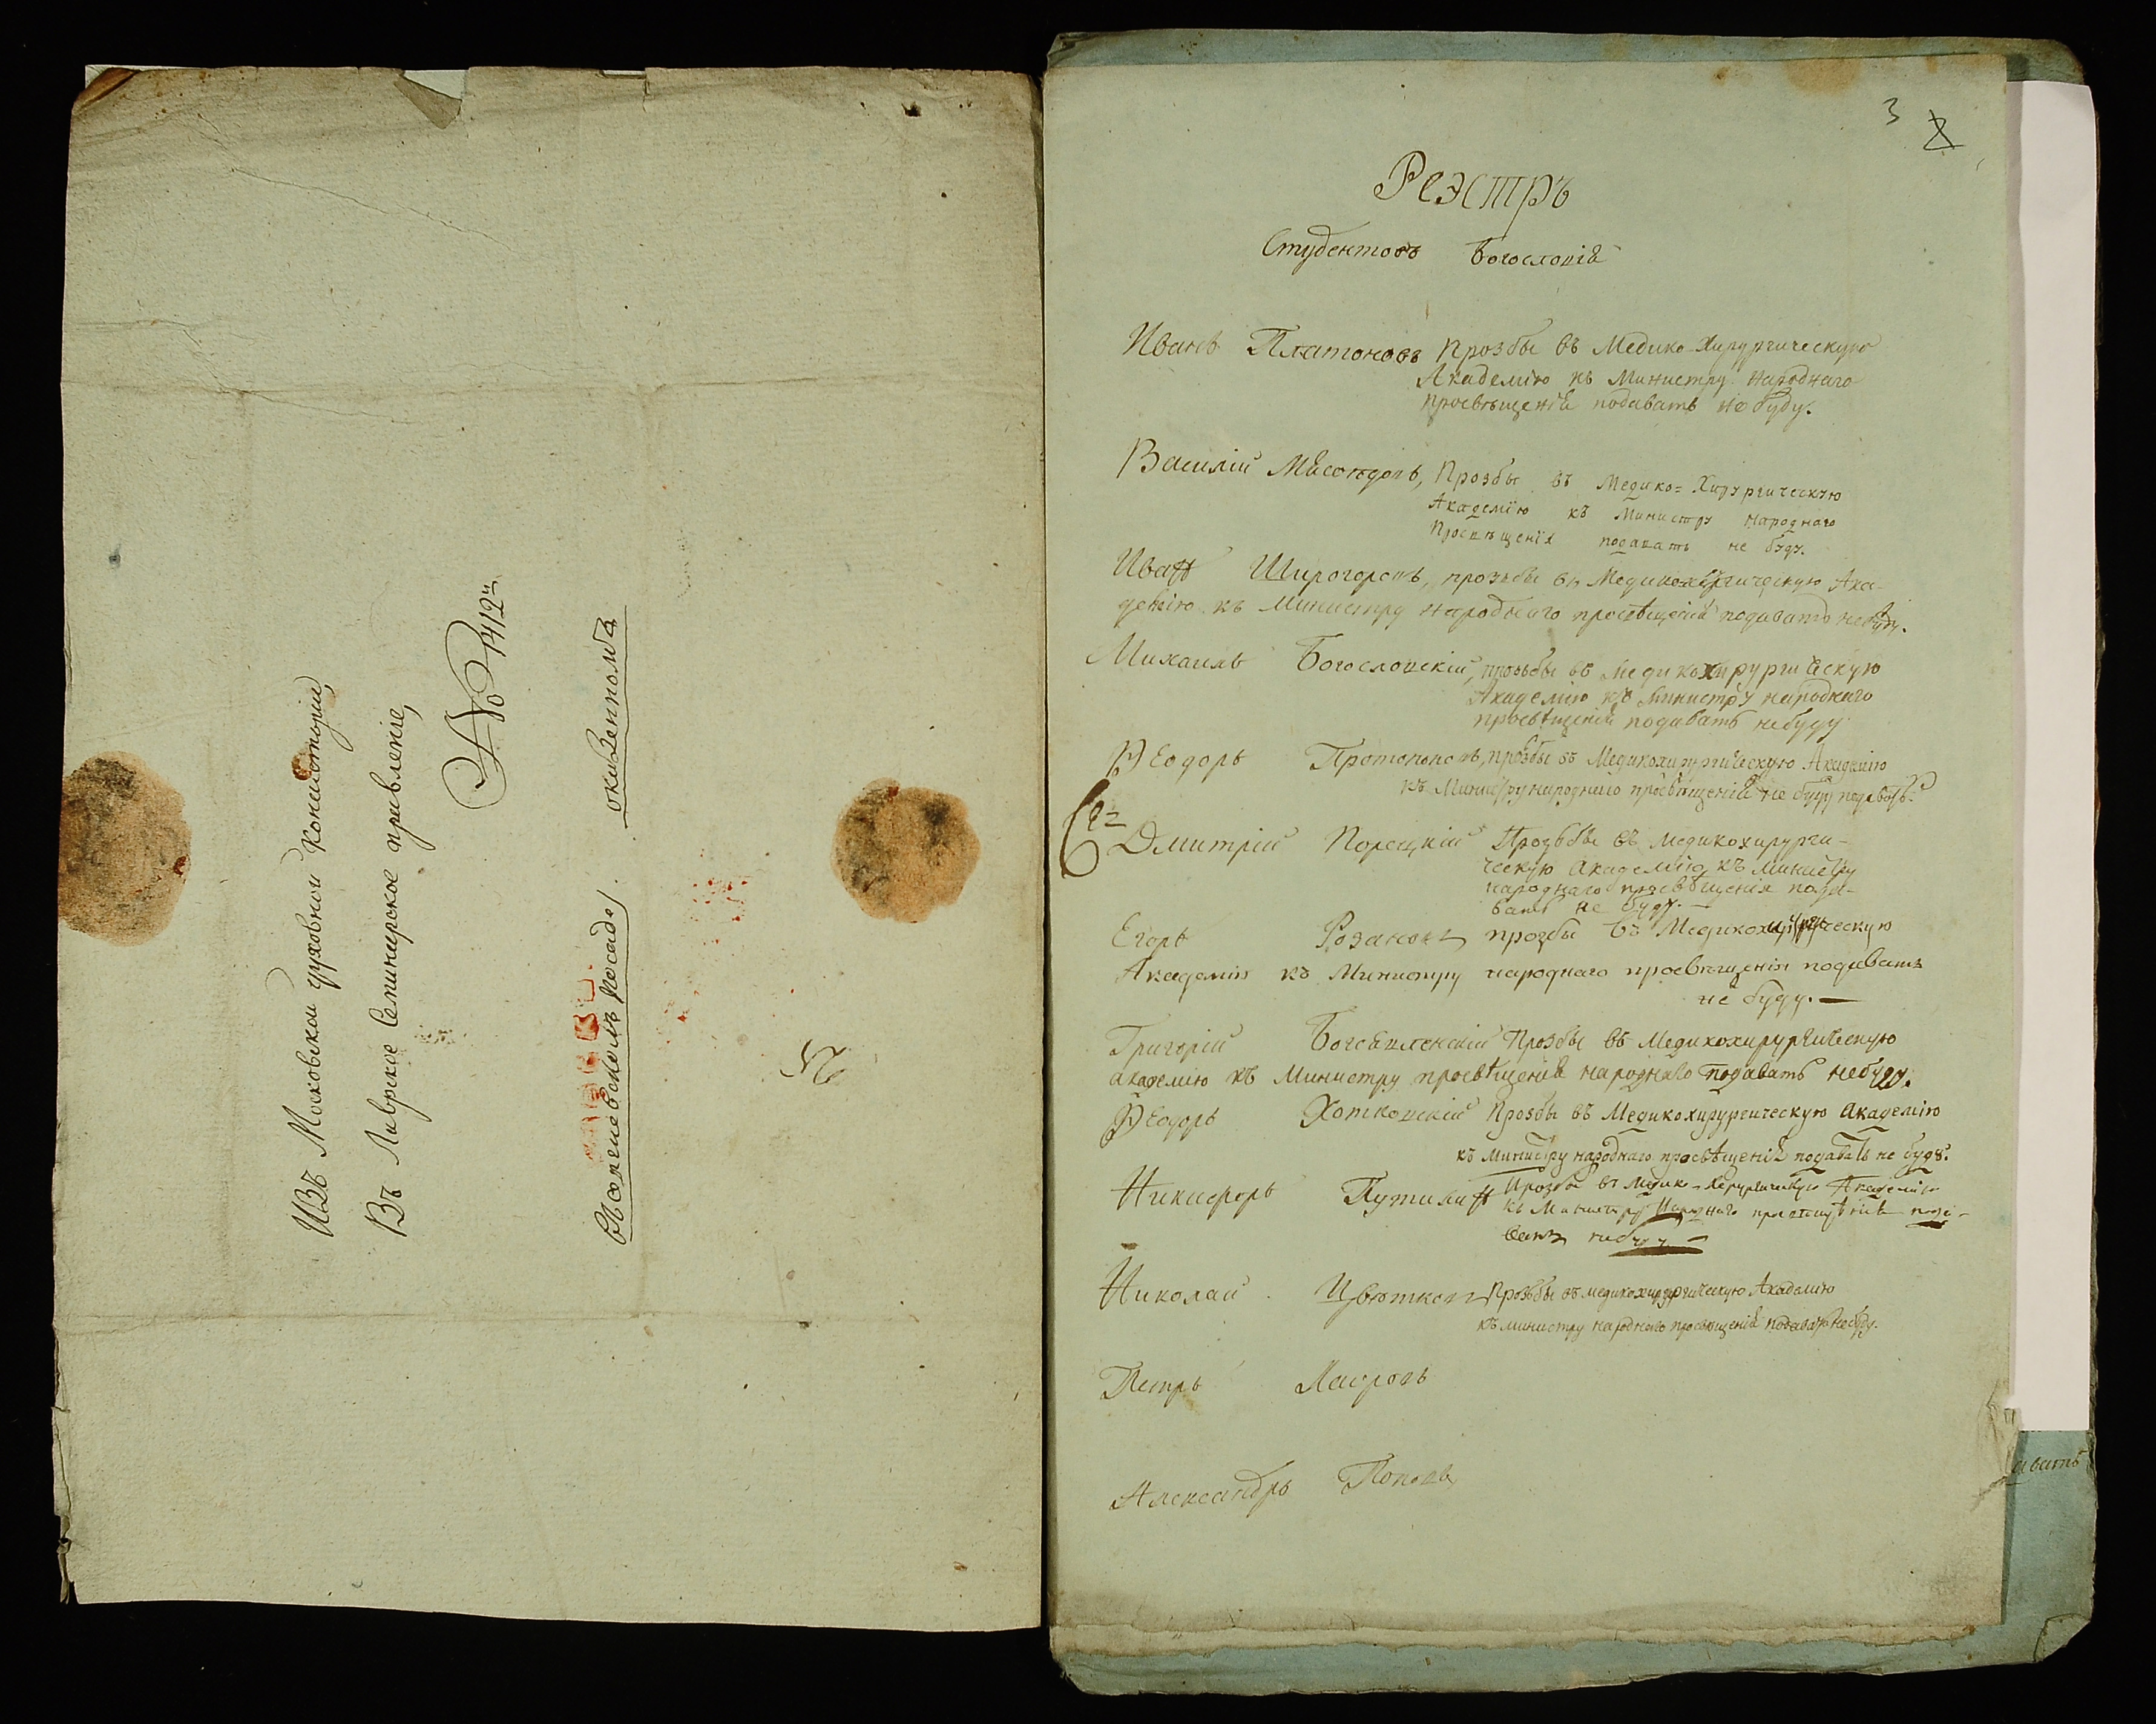 ИЗъ Московской духовной Консисторіи,
Въ Лаврское Семинарское правленіе,
№ 1412й
въ Сергіевскомъ посаде
3
Реэстръ
Студентовъ Богословія
Иванъ Платоновъ Прозбы въ Медико-Хирургическую
Академію къ Министру народнаго
просвѣщенія подавать не буду.
Василій Прозбы въ Медико-Хирургическую
Академію къ Министру Народнаго
Просвѣщенія подавать не буду.
Иванъ Широгоровъ, прозьбы въ Медикохиргическую Ака-
демію къ Министру народнаго просвѣщенія подавать не буду.
Михаилъ Богословскій, прозьбы въ Медикохирургическую
Академію къ Министру народнаго
просвѣщенія подавать небуду
Ѳеодоръ Протопоповъ, прозбы въ Медикохирургическую Академію
къ Министру народнаго просвѣщенія не буду подавать.
Дмитрій Порецкій Прозьбы въ медикохирурги-
ческую Академію къ Министру
народнаго просвѣщенія пода-
вать не буду.
Егоръ Розановъ прозбы въ Медикохирургическую
Академію къ Министру народнаго просвѣщенія подавать
не буду.
Григорій Богоявленскій Прозбы въ Медикохирургическую
академію къ Министру просвѣщенія народнаго подавать небуду.
Ѳеодоръ Хотковскій Прозбы въ Медикохирургическую Академію
къ Министру народнаго просвѣщенія подавать не буду.
Никифоръ Путилинъ Прозбы въ Медико-Хирургическую Академію
къ Министру Народнаго просвѣщенія пода-
вать небуду
Николай Цвѣтковъ Прозьбы въ медикохирургическую Академію
къ министру народнаго просвѣщенія подавать не буду.
Петръ Лавровъ
Александръ Поповъ
авать